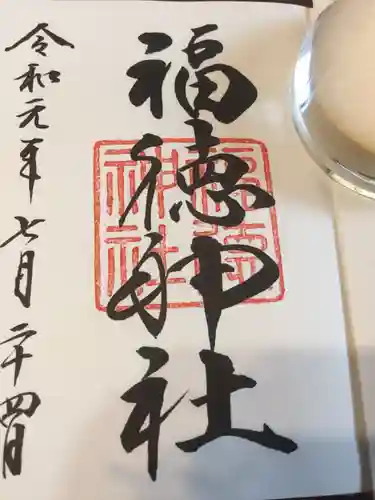 福徳神社
令和元年七月二十四日
福徳神社